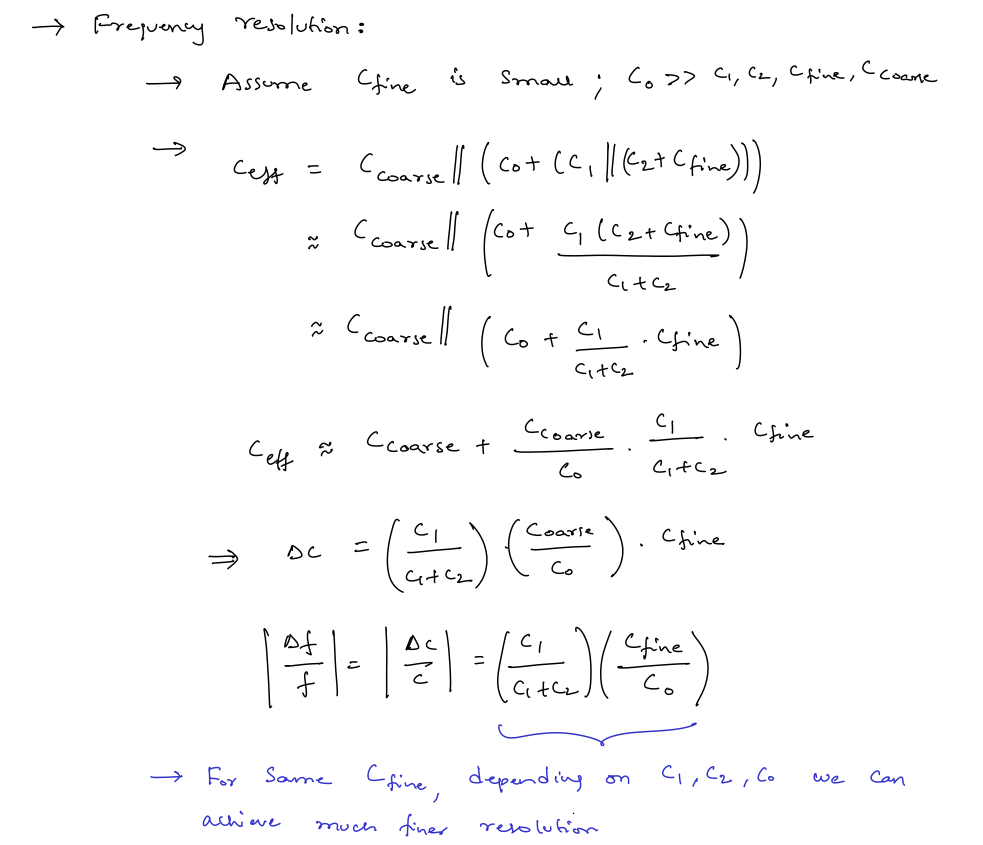 → Frequency resolution:
→ Assume C_fine is small ; C_0 >> C_1, C_2, C_fine, C_coarse
→ C_eff = C_coarse || (C_0 + (C_1 || (C_2 + C_fine)))
≈ C_coarse || (C_0 + C_1 (C_2 + C_fine) / (C_1 + C_2))
≈ C_coarse || (C_0 + C_1 / (C_1 + C_2) · C_fine)
C_eff ≈ C_coarse + C_coarse / C_0 · C_1 / (C_1 + C_2) · C_fine
⇒ ΔC = (C_1 / (C_1 + C_2)) · (Coarse / C_0) · C_fine
|Δf / f| = |ΔC / C| = (C_1 / (C_1 + C_2)) (C_fine / C_0)
→ For same C_fine, depending on C_1, C_2, C_0 we can
achieve much finer resolution